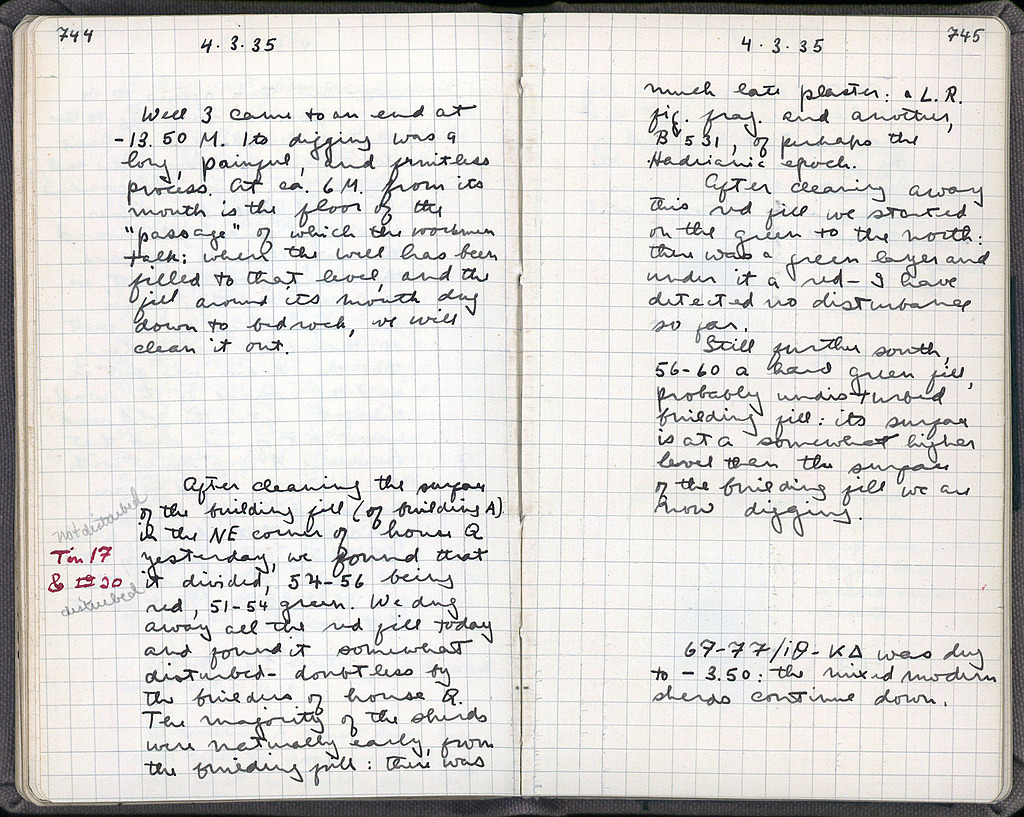 744
4.3.35
Well 3 came to an end at
-13.50 M. Its digging was a
long, painful, and fruitless
process. At ca. 6 M. from its
mouth is the floor of the
"passage" of which the workmen
talk: when the well has been
filled to that level, and the
fill around its mouth dug
down to bedrock, we will
clean it out.
After cleaning the surface
of the building fill (of building A)
in the NE corner of house Q
yesterday, we found that
it divided, 54-56 being
red, 51-54 green. We dug
away all the red fill today
and found it somewhat
disturbed - doubtless by
the builders of house Q.
The majority of the sherds
were naturally early, from
the building fill: there was
not disturbed
Tin 17
& 20
disturbed
745
4.3.35
much late plaster: a L.R.
fig. frag. and another,
B 531, of perhaps the
Hadrianic epoch.
After cleaning away
this red fill we started
on the green to the north:
there was a green layer and
under it a red - I have
detected no disturbance
so far.
Still further south,
56-60 a hard green fill,
probably undisturbed
building fill: its surface
is at a somewhat higher
level than the surface
of the building fill we are
know digging.
67-77/ΙΘ-ΚΔ was dug
to -3.50: the mixed modern
sherds continue down.